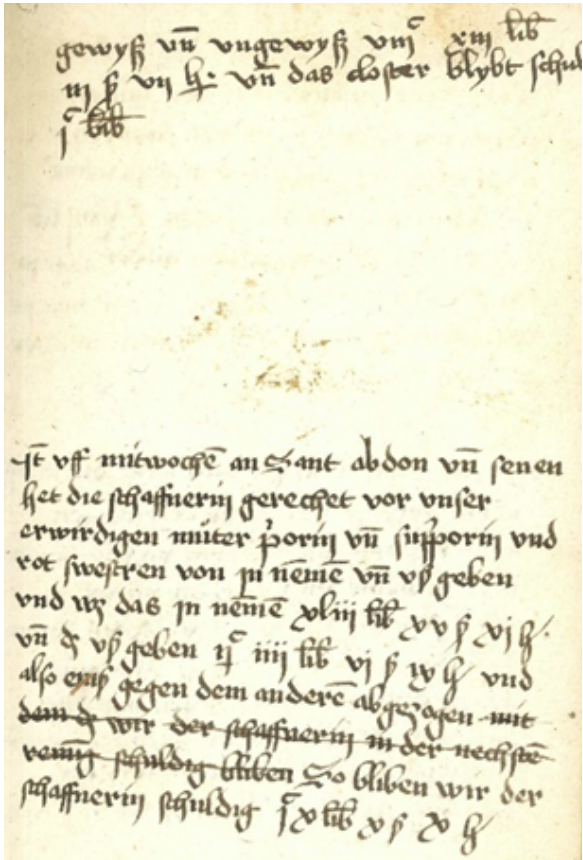 gewyß vn̄ vngewyß viijᶜ xiij lib
iij ß vij h· vn̄ das closter blybt schul
jᶜ lib
Jt̄ vff mitwochē an Sant abdon vn̄ senen
het die schaffnerin gerechet vor vnser
erwirdigen můter p̄orin vn̄ supp̄orin vnd
rot swestren von in nēmē vn̄ vß geben
vnd wz das in nēmē xliij lib xv ß xj h·
vn̄ dz vß geben ijᶜ iiij lib vj ß h vnd
also eins gegen dem anderē abgezogen mit
dem dz wir der schaffnerin in der nechstē
schuldig bliben So bliben wir der
schaffnerin schuldig jᶜ x lib x ß h